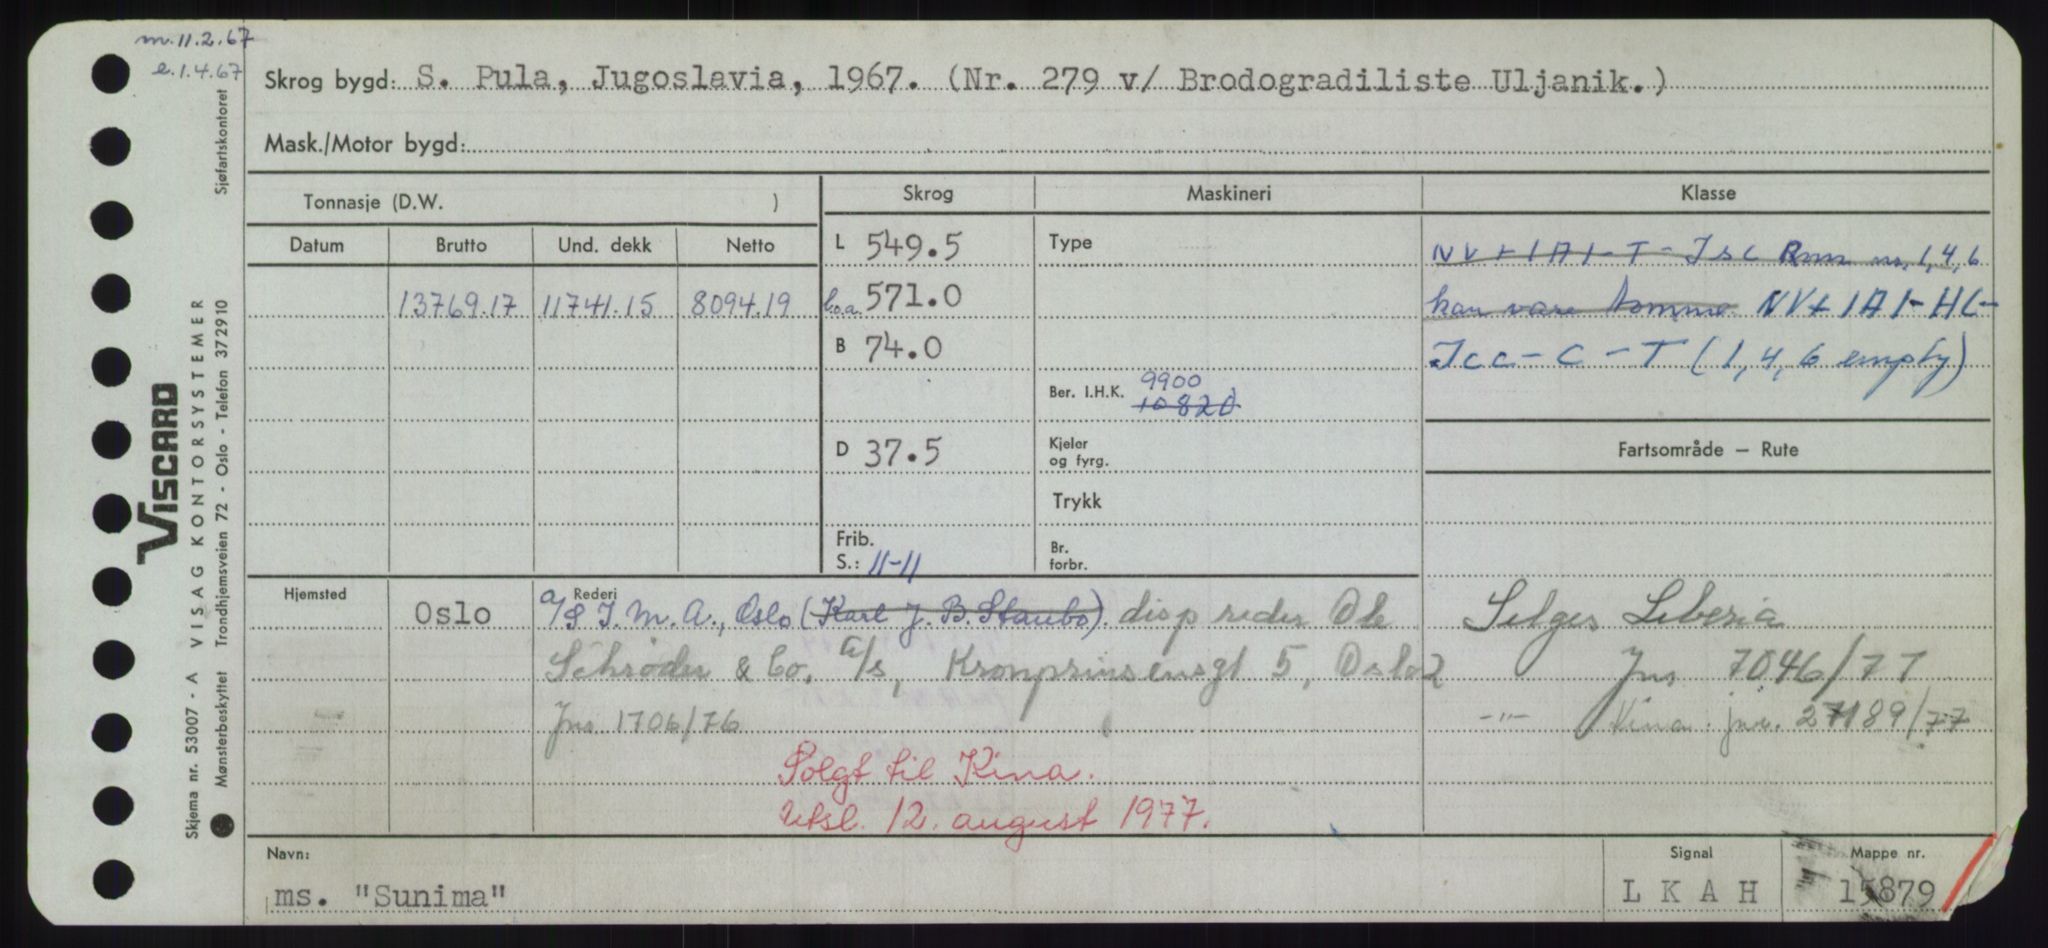 m. 11.2.67
e. 1.4.67
Skrog bygd: S. Pula, Jugoslavia, 1967. (Nr. 279 v/ Brodogradiliste Uljanik.)
Mask./Motor bygd:
Tonnasje (D.W. )
Skrog
Maskineri
Klasse
Datum Brutto Und. dekk Netto
L 549.5
Type
NV + 1A1 - T - Isc Rom nr. 1, 4, 6
13769.17 11741.15 8094.19
l.o.a. 571.0
kan være tomme NV + 1A1 - HC -
B 74.0
Icc - C - T (1, 4, 6 empty)
Ber. I.H.K. 9900
10820
D 37.5
Kjeler og fyrg.
Fartsområde — Rute
Trykk
Frib.
S.: 11-11
Br. forbr.
Hjemsted Oslo
Rederi
A/S I. M. A., Oslo (Karl J. B. Staubo). disp reder Ole
Schrøder & Co. A/S, Kronprinsensgt 5, Oslo 2
Jnr 1706/76
Selges Liberia
Jnr 7046/77
-"- Kina. jnr. 27189/77
Solgt til Kina.
Utsl. 12. august 1977.
Navn:
ms. "Sunima"
Signal
LKAH
Mappe nr.
15879
VISCARD
Skjema nr. 53007 - A VISAG KONTORSYSTEMER
Mønsterbeskyttet Trondhjemsveien 72 - Oslo - Telefon 372910 Sjøfartskontoret